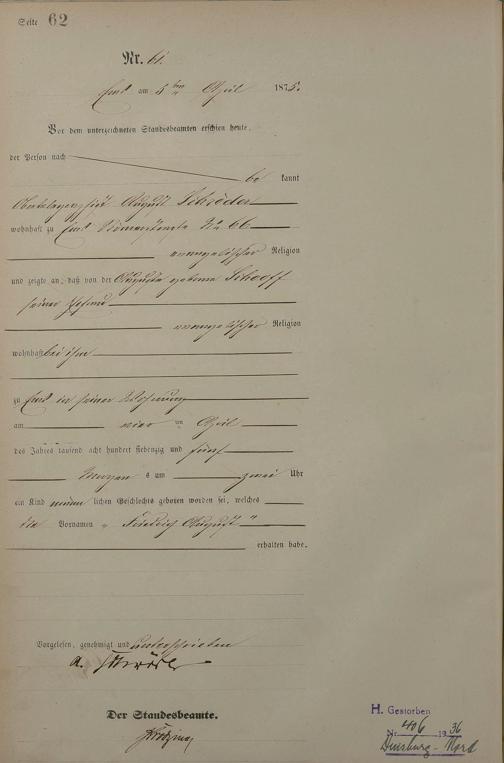 Seite 62
Nr. 61.
Ems am 5ten April 1875.
Vor dem unterzeichneten Standesbeamten erschien heute,
der Person nach
be kannt
August Schröder
wohnhaft zu Ems No 66
evangelischer Religion
und zeigte an, daß von der Auguste geborne Schooff
seiner Ehefrau
evangelischer Religion
wohnhaft bei ihm
zu Ems in seiner Wohnung
am vier ten April
des Jahres tausend acht hundert siebenzig und fünf
Morgen s um zwei Uhr
ein Kind männlichen Geschlechts geboren worden sei, welches
die Vornamen „Friedrich August"
erhalten habe.
Vorgelesen, genehmigt und unterschrieben
A. Schröder
Der Standesbeamte.
H. Gestorben
Nr. 406 1936
Duisburg-Nord